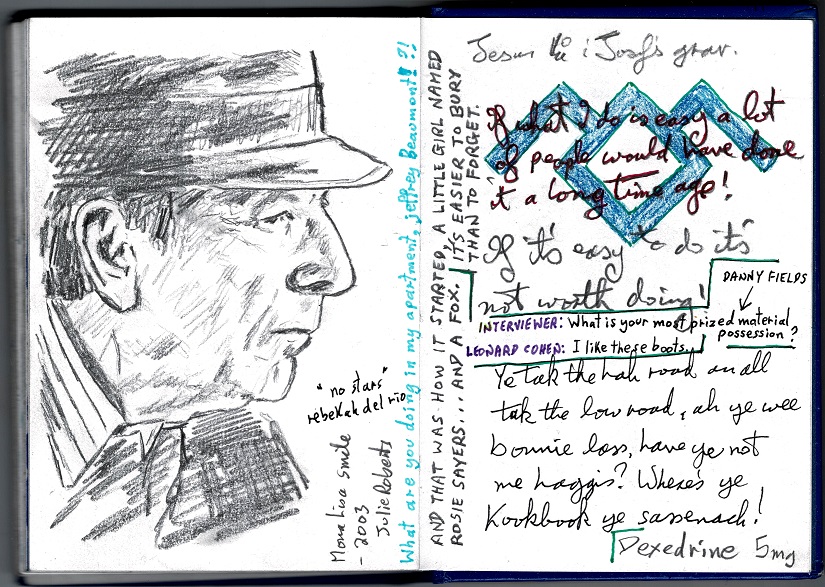 "no stars"
rebekah del rio
Mona Lisa Smile
- 2003
Julie Roberts
What are you doing in my apartment, jeffrey Beaumont!?!
AND THAT WAS HOW IT STARTED, A LITTLE GIRL NAMED
ROSIE SAYERS... AND A FOX. IT'S EASIER TO BURY
THAN TO FORGET.
Jesus i Josf's grav.
If what I do is easy a lot
of people would have done
it a long time ago!
If it's easy to do it's
not worth doing!
DANNY FIELDS
INTERVIEWER: What is your most prized material
possession?
LEONARD COHEN: I like these boots...
Ye tak the hah road an all
tak the low road, ah ye wee
bonnie lass, have ye not
me haggis? Where's ye
Kookbook ye sassenach!
Dexedrine 5mg